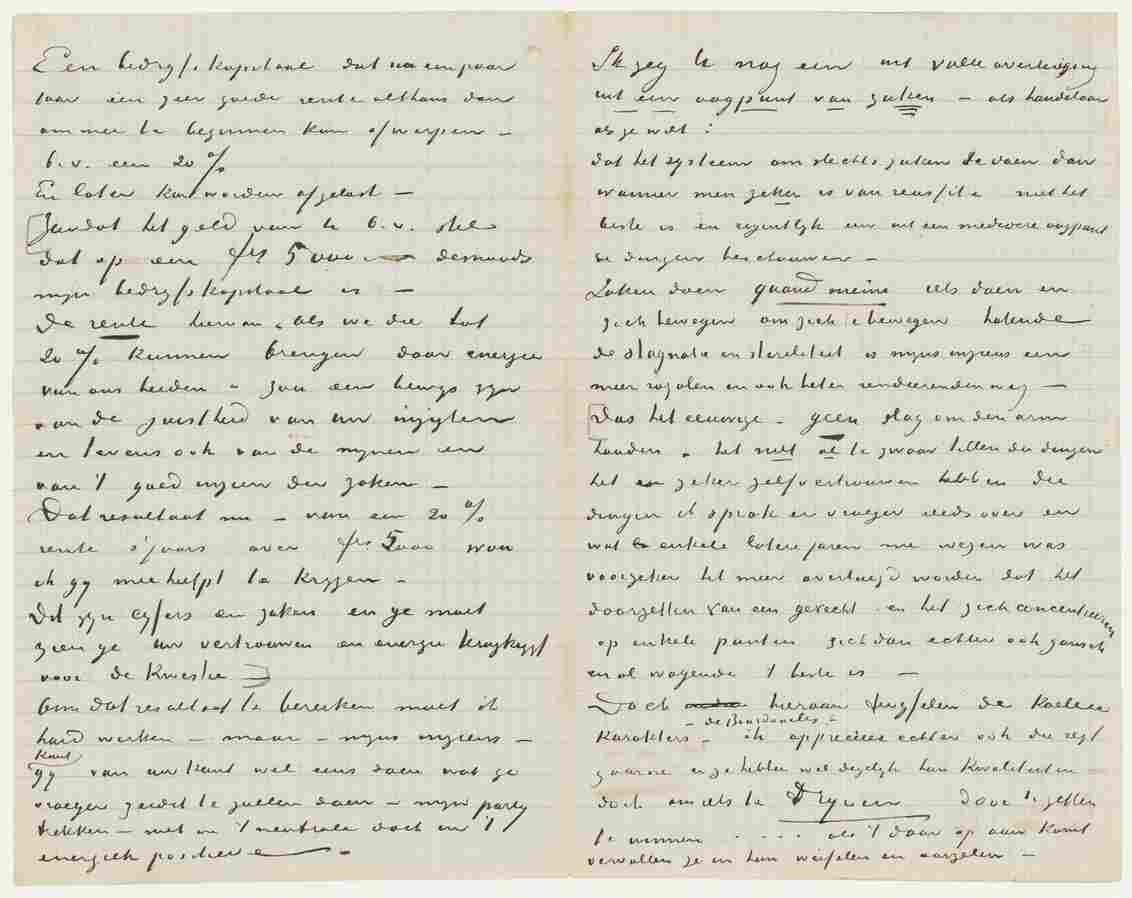 Een bedrijfskapitaal dat na een paar
jaar een zeer goede rente althans dan
om mee te beginnen kan afwerpen –
b.v. een 20 %
En later kan worden afgelost –
Zoodat het geld van te b.v. stel
dat op een frs 5000 – desnoods
mijn bedrijfskapitaal is –
De rente hiervan, als we die tot
20 % kunnen brengen door energie
van ons beiden – zou een bewijs zijn
van de juistheid van uw inzigten
en tevens ook van de mijnen en
van 't goed inzien der zaken –
Dat resultaat nu – van een 20 %
rente 's jaars over frs 5000 wou
ik gij mee helpt te krijgen –
Dit zijn cijfers en zaken en ge moet
zien ge uw vertrouwen en energie terugkrijgt
voor de kwestie
Om dat resultaat te bereiken moet ik
hard werken – maar – mijns inziens –
kant
gij van uw kant wel eens doen wat ge
vroeger zeidet te zullen doen – mijn partij
trekken – niet in 't neutrale doch in 't
energiek positieve –
Ik zeg U nog eens uit volle overtuiging
uit een oogpunt van zaken – als handelaar
als je wilt :
dat het systeem om slechts zaken te doen dan
wanneer men zeker is van reussite niet het
beste is en eigentlijk een uit een mediocre oogpunt
de dingen beschouwen –
Zaken doen quand meme iets doen en
zich bewegen om zich te bewegen hatende
de stagnatie en steriliteit is mijns inziens een
meer royalen en ook beter rendeerenden weg –
Dus het eeuwige – geen slag om den arm
houden – het niet al te zwaar tillen der dingen
het zeker zelfvertrouwen hebben die
dingen ik sprak er vroeger reeds over en
wat enkele latere jaren me wezen was
voorzeker het meer overtuigd worden dat het
doorzetten van een gevecht en het zich concentreeren
op enkele punten zich dan echter ook gansch
en al wagende 't beste is –
Doch hieraan twijfelen de koelere
– de Bourdoncles –
karakters – ik apprecieer echter ook die zeer
gaarne en ze hebben wel degelijk hun kwaliteiten
doch om iets te Drijven door te zetten
te winnen . . . . als 't daar op aan komt
vervallen ze in hun weifelen en aarzelen –